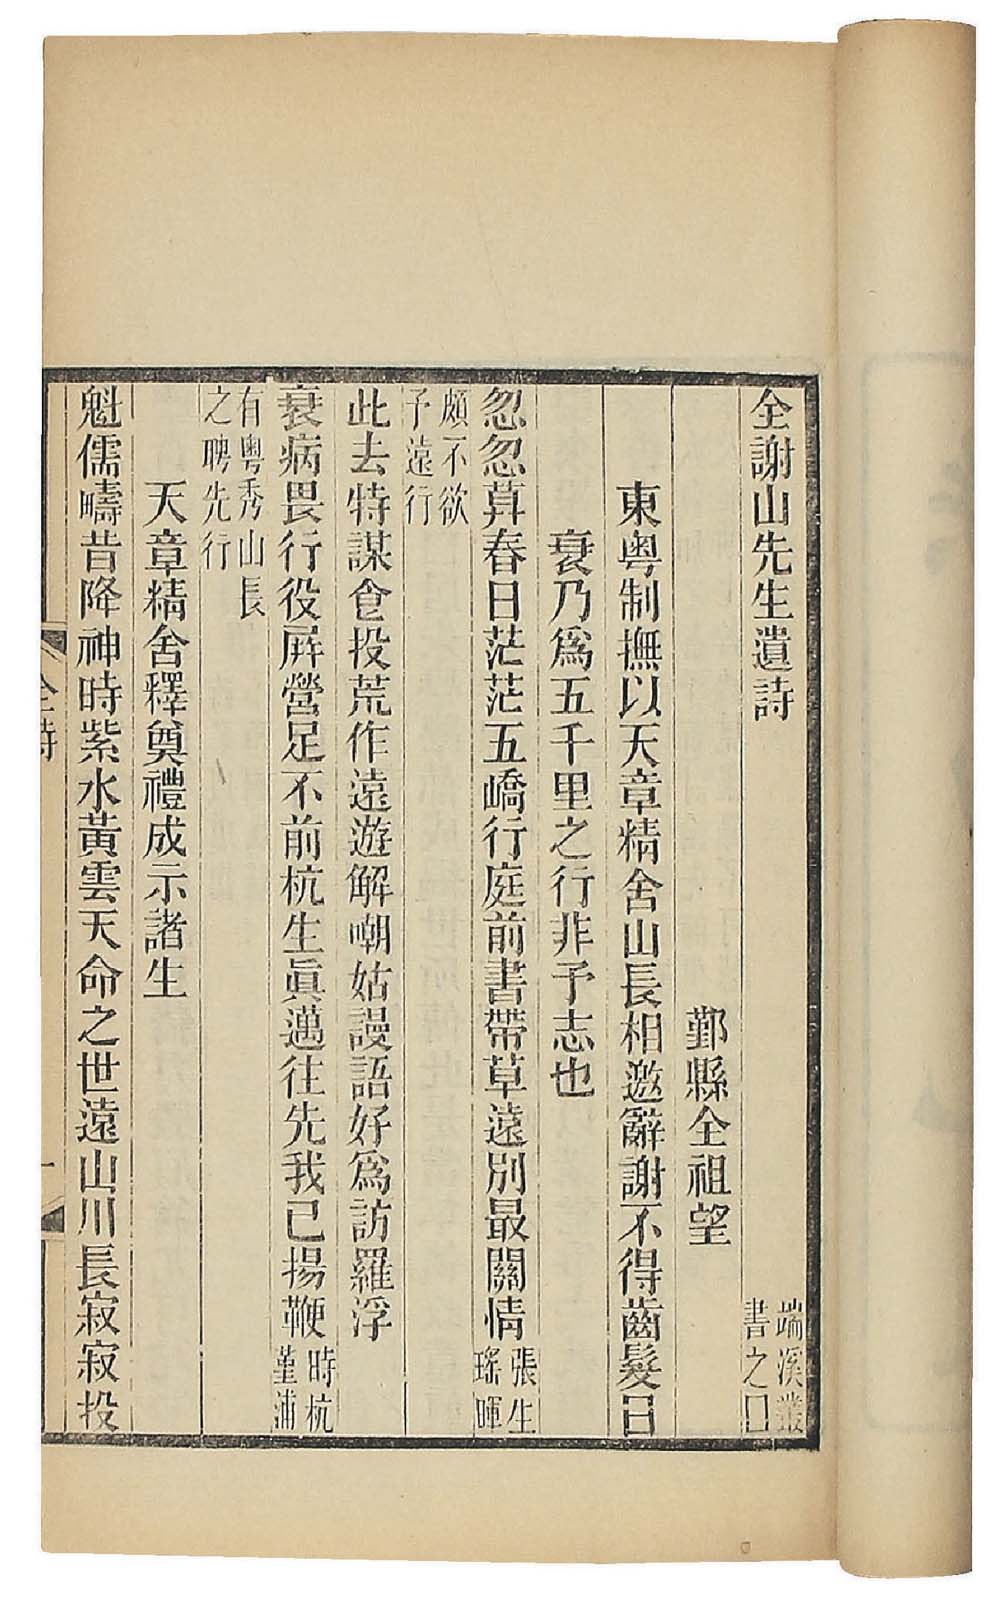 全謝山先生遺詩
端溪叢
書之囗
鄞縣全祖望
東粵制撫以天章精舍山長相邀辭謝不得齒髮日
衰乃爲五千里之行非予志也
忽忽算春日茫茫五嶠行庭前書帶草遠別最關情
張生
瑤暉
頗不欲
予遠行
此去特謀食投荒作遠遊解嘲姑謾語好爲訪羅浮
衰病畏行役屛營足不前杭生眞邁往先我已揚鞭
時杭
堇浦
有粵秀山長
之聘先行
天章精舍釋奠禮成示諸生
魁儒疇昔降神時紫水黃雲天命之世遠山川長寂寂投
全詩
一